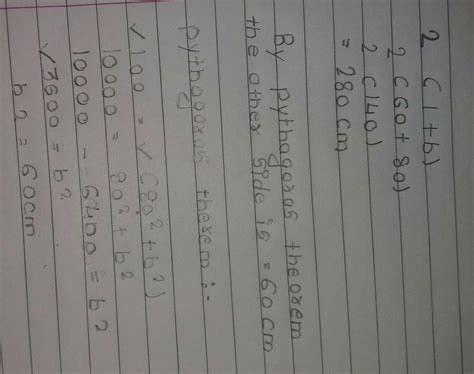 2 (l+b)
2 (60+80)
2 (140)
= 280 cm
By pythagoras theorem
the other side is = 60cm
pythagoras therem :-
√100 = √(80²+b²)
10000 = 80²+b²
10000 - 6400 = b²
√3600 = b²
b2 = 60cm